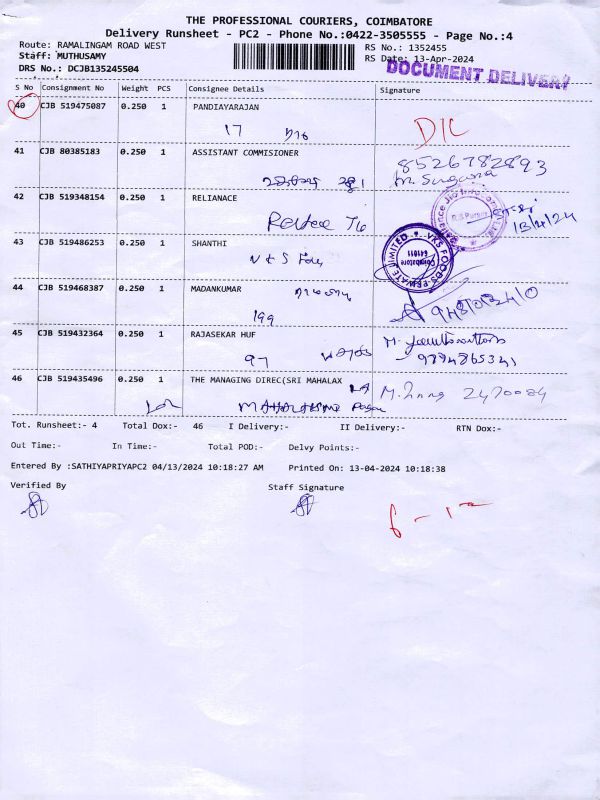 THE PROFESSIONAL COURIERS, COIMBATORE
Delivery Runsheet - PC2 - Phone No.:0422-3505555 - Page No.:4
Route: RAMALINGAM ROAD WEST
RS No.: 1352455
Staff: MUTHUSAMY
RS Date: 13-Apr-2024
DRS No.: DCJB135245504
DOCUMENT DELIVERY
S No Consignment No Weight PCS Consignee Details Signature
40 CJB 519475087 0.250 1 PANDIAYARAJAN
17
D/L
41 CJB 80385183 0.250 1 ASSISTANT COMMISIONER
8526782893
42 CJB 519348154 0.250 1 RELIANACE
13/4/24
43 CJB 519486253 0.250 1 SHANTHI
VKS FOODS PRIVATE LIMITED
Coimbatore
641011
44 CJB 519468387 0.250 1 MADANKUMAR
199
45 CJB 519432364 0.250 1 RAJASEKAR HUF
97
9894865341
46 CJB 519435496 0.250 1 THE MANAGING DIREC(SRI MAHALAX
2470084
Tot. Runsheet:- 4 Total Dox:- 46 I Delivery:- II Delivery:- RTN Dox:-
Out Time:- In Time:- Total POD:- Delvy Points:-
Entered By :SATHIYAPRIYAPC2 04/13/2024 10:18:27 AM Printed On: 13-04-2024 10:18:38
Verified By Staff Signature